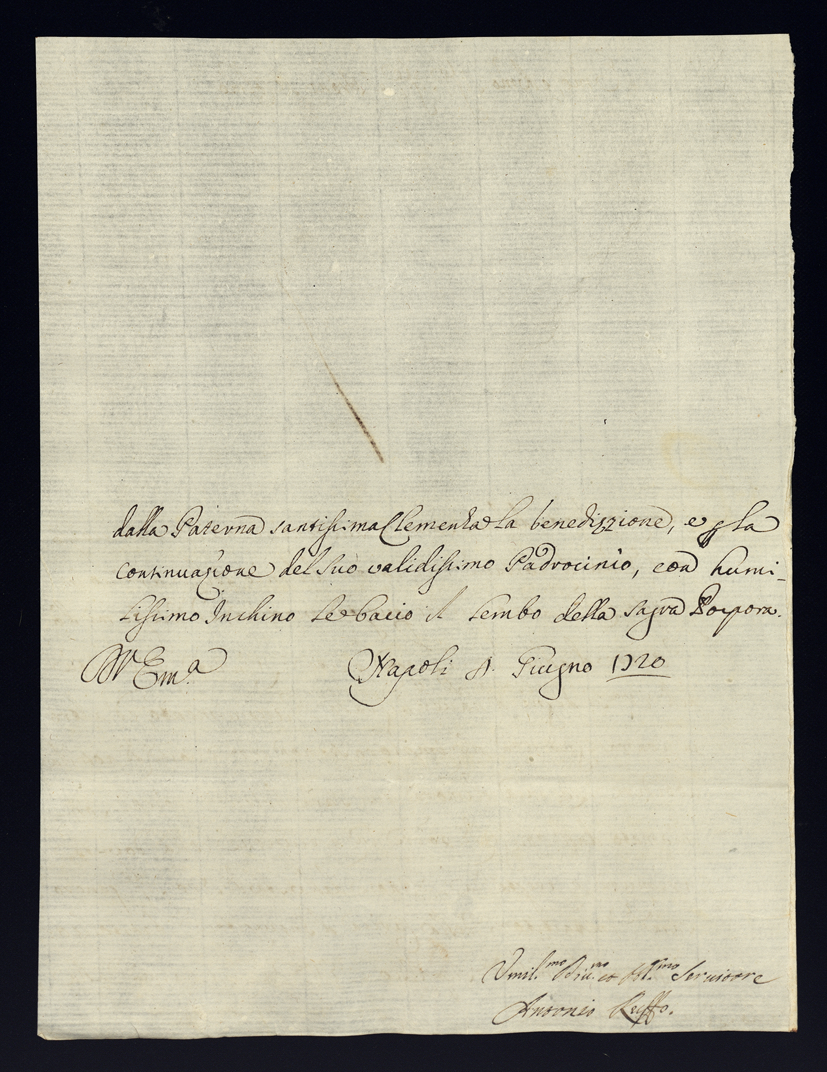 dalla Paterna santissima Clemenza la benedizzione, e p la
continuazione del suo validissimo Padrocinio, con humi-
lissimo Inchino le bacio il lembo della sagra Porpora.
Em.ª Napoli 8. Giugno 1720
Umil.mo Div.mo et Servitore
Antonio Ruffo.